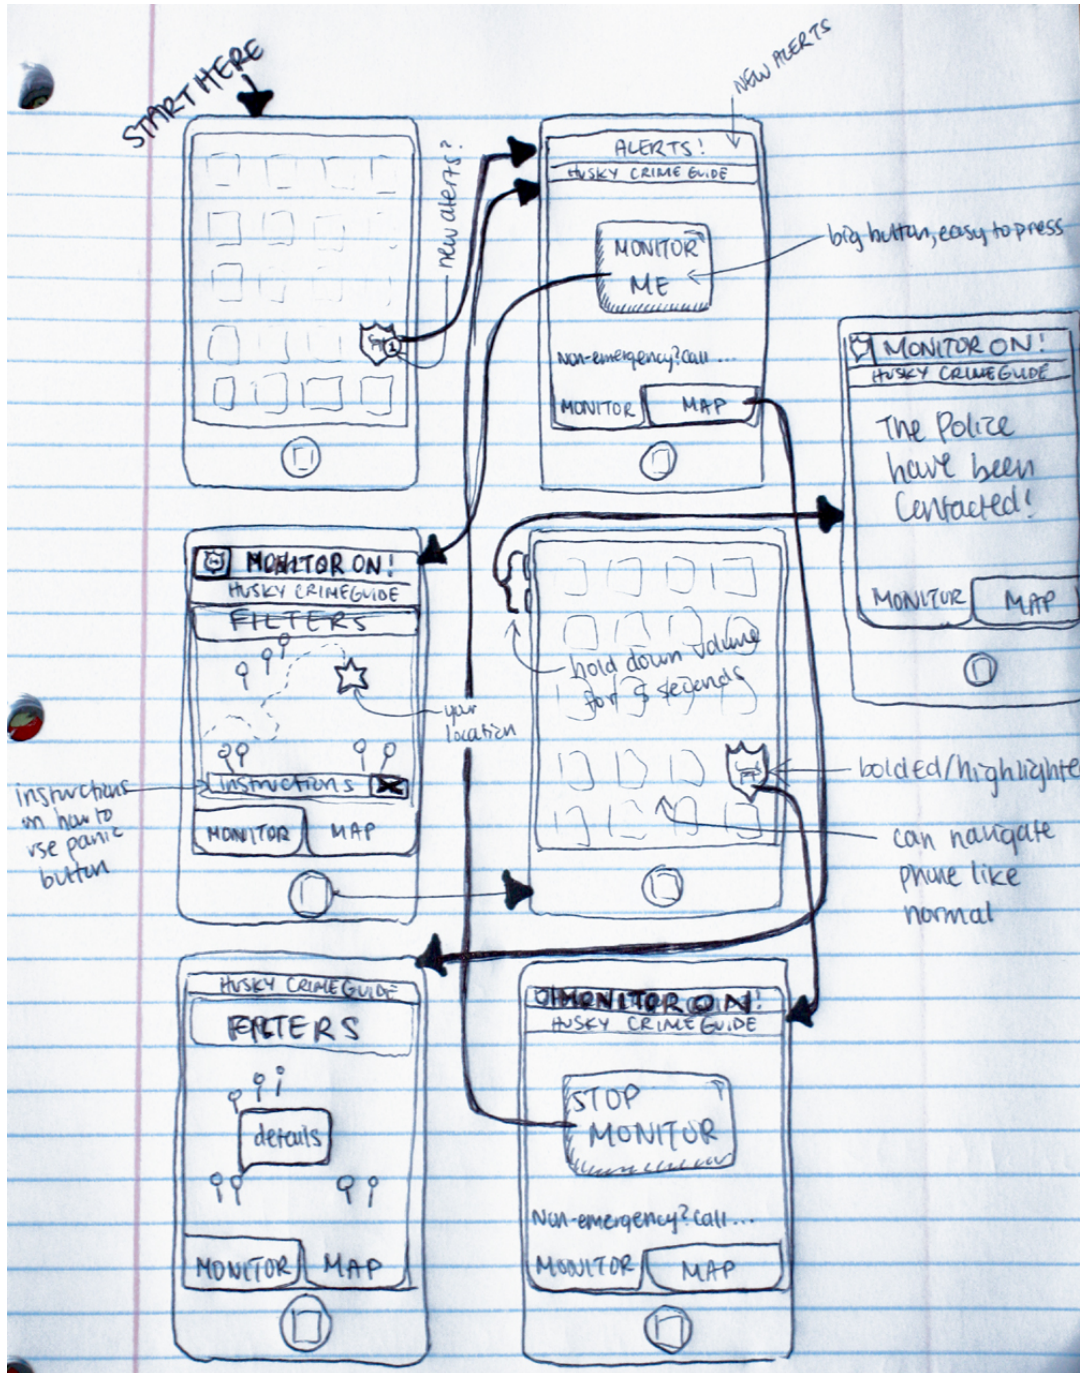 START HERE
new alerts?
1
NEW ALERTS
ALERTS!
HUSKY CRIME GUIDE
MONITOR
ME
big button, easy to press
Non-emergency? Call ...
MONITOR
MAP
MONITOR ON!
HUSKY CRIME GUIDE
The Police
have been
Contacted!
MONITOR
MAP
MONITOR ON!
HUSKY CRIME GUIDE
FILTERS
your
location
instructions
MONITOR
MAP
instructions
on how to
use panic
button
hold down volume
for 5 seconds
bolded/highlighte
can navigate
phone like
normal
HUSKY CRIME GUIDE
FILTERS
details
MONITOR
MAP
MONITOR ON!
HUSKY CRIME GUIDE
STOP
MONITOR
Non-emergency? Call ...
MONITOR
MAP